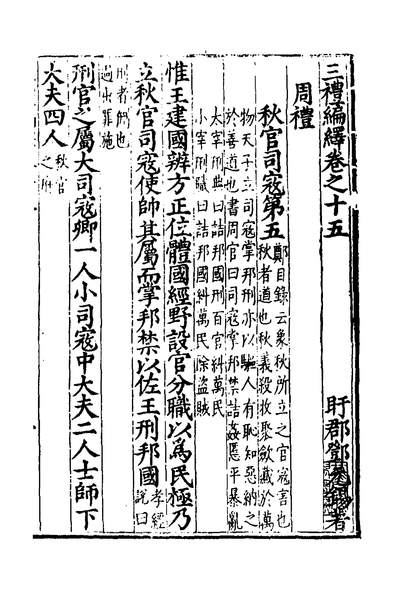 三禮編繹卷之十五 盱郡鄧錫著
周禮
秋官司寇第五
鄭目錄云象秋所立之官寇害也
秋者遒也秋義殺收聚斂藏於萬
物天子立司寇掌邦刑亦以驅人有恥知惡納之
於善道也書周官曰司寇掌邦禁詰姦慝平暴亂
大宰刑典曰詰邦國刑百官糾萬民
小宰刑職曰詰邦國糾萬民除盜賊
惟王建國辨方正位體國經野設官分職以為民極乃
立秋官司寇使帥其屬而掌邦禁以佐王刑邦國孝經
說曰
刑者侀也
過出罪施
刑官之屬大司寇卿一人小司寇中大夫二人士師下
大夫四人秋官
之